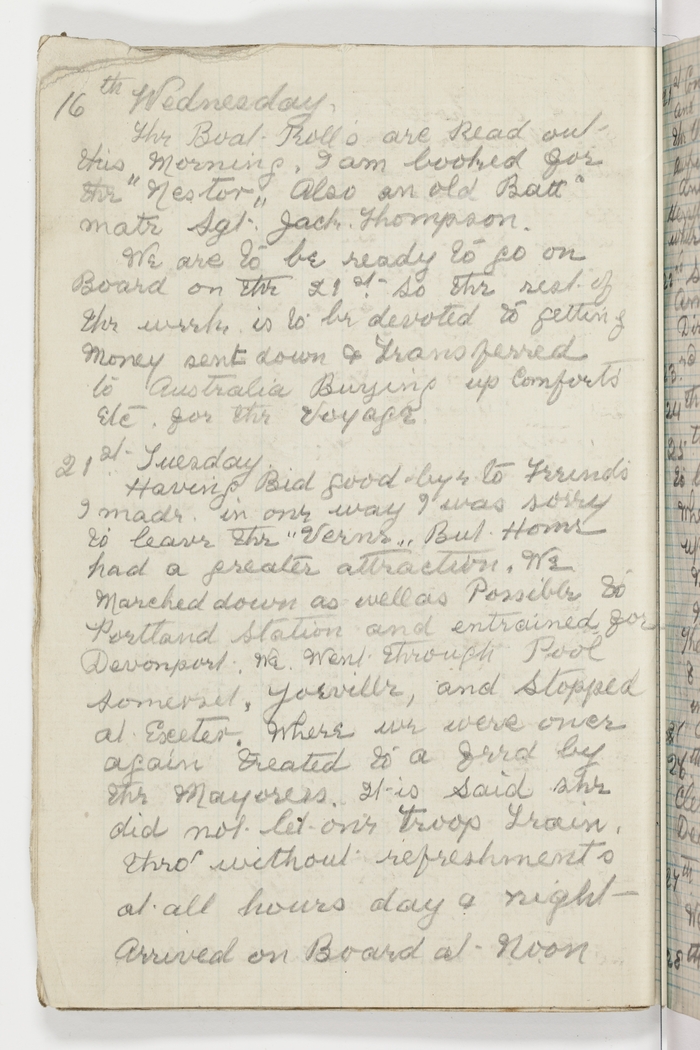 16th Wednesday.
The Boat Roll's are Read out
this Morning. I am booked for
the "Nestor" Also an old Batt"
mate Sgt. Jack Thompson.
We are to be ready to go on
Board on the 21st so the rest of
the week is to be devoted to getting
Money sent down & Transferred
to Australia Buying up Comforts
Etc. for the Voyage.
21st Tuesday.
Having Bid good-bye to Freinds
I made in one way I was sorry
to leave the "Verne" But Home
had a greater attraction. We
Marched down as well as Possible to
Portland Station and entrained for
Devonport. We Went through Pool
Somerset, Yoeville, and Stopped
at Exeter. Where we were once
again treated to a feed by
the Mayoress. It is said she
did not let one troop Train.
thro' without refreshments
at all hours day & night—
Arrived on Board at Noon